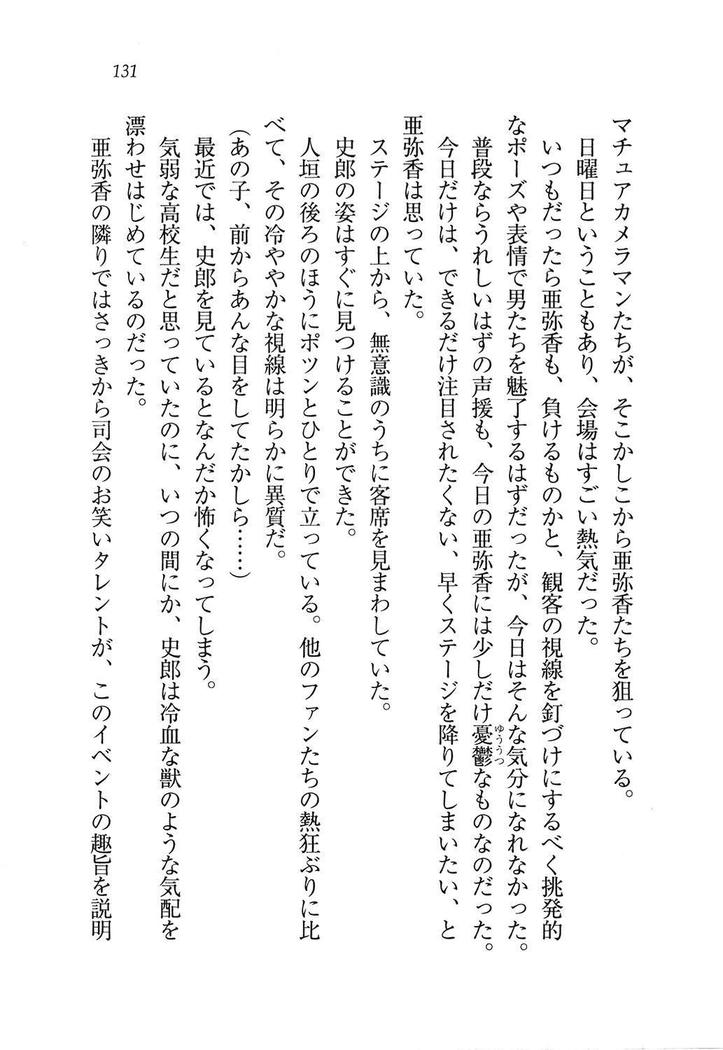 131
マチュアカメラマンたちが、そこかしこから亜弥香たちを狙っている。
日曜日ということもあり、会場はすごい熱気だった。
いつもだったら亜弥香も、負けるものかと、観客の視線を釘づけにするべく挑発的
なポーズや表情で男たちを魅了するはずだったが、今日はそんな気分になれなかった。
普段ならうれしいはずの声援も、今日の亜弥香には少しだけ憂鬱なものなのだった。
ゆううつ
今日だけは、できるだけ注目されたくない、早くステージを降りてしまいたい、と
亜弥香は思っていた。
ステージの上から、無意識のうちに客席を見まわしていた。
史郎の姿はすぐに見つけることができた。
人垣の後ろのほうにポツンとひとりで立っている。他のファンたちの熱狂ぶりに比
べて、その冷ややかな視線は明らかに異質だ。
（あの子、前からあんな目をしてたかしら……）
最近では、史郎を見ているとなんだか怖くなってしまう。
気弱な高校生だと思っていたのに、いつの間にか、史郎は冷血な獣のような気配を
漂わせはじめているのだった。
亜弥香の隣りではさっきから司会のお笑いタレントが、このイベントの趣旨を説明